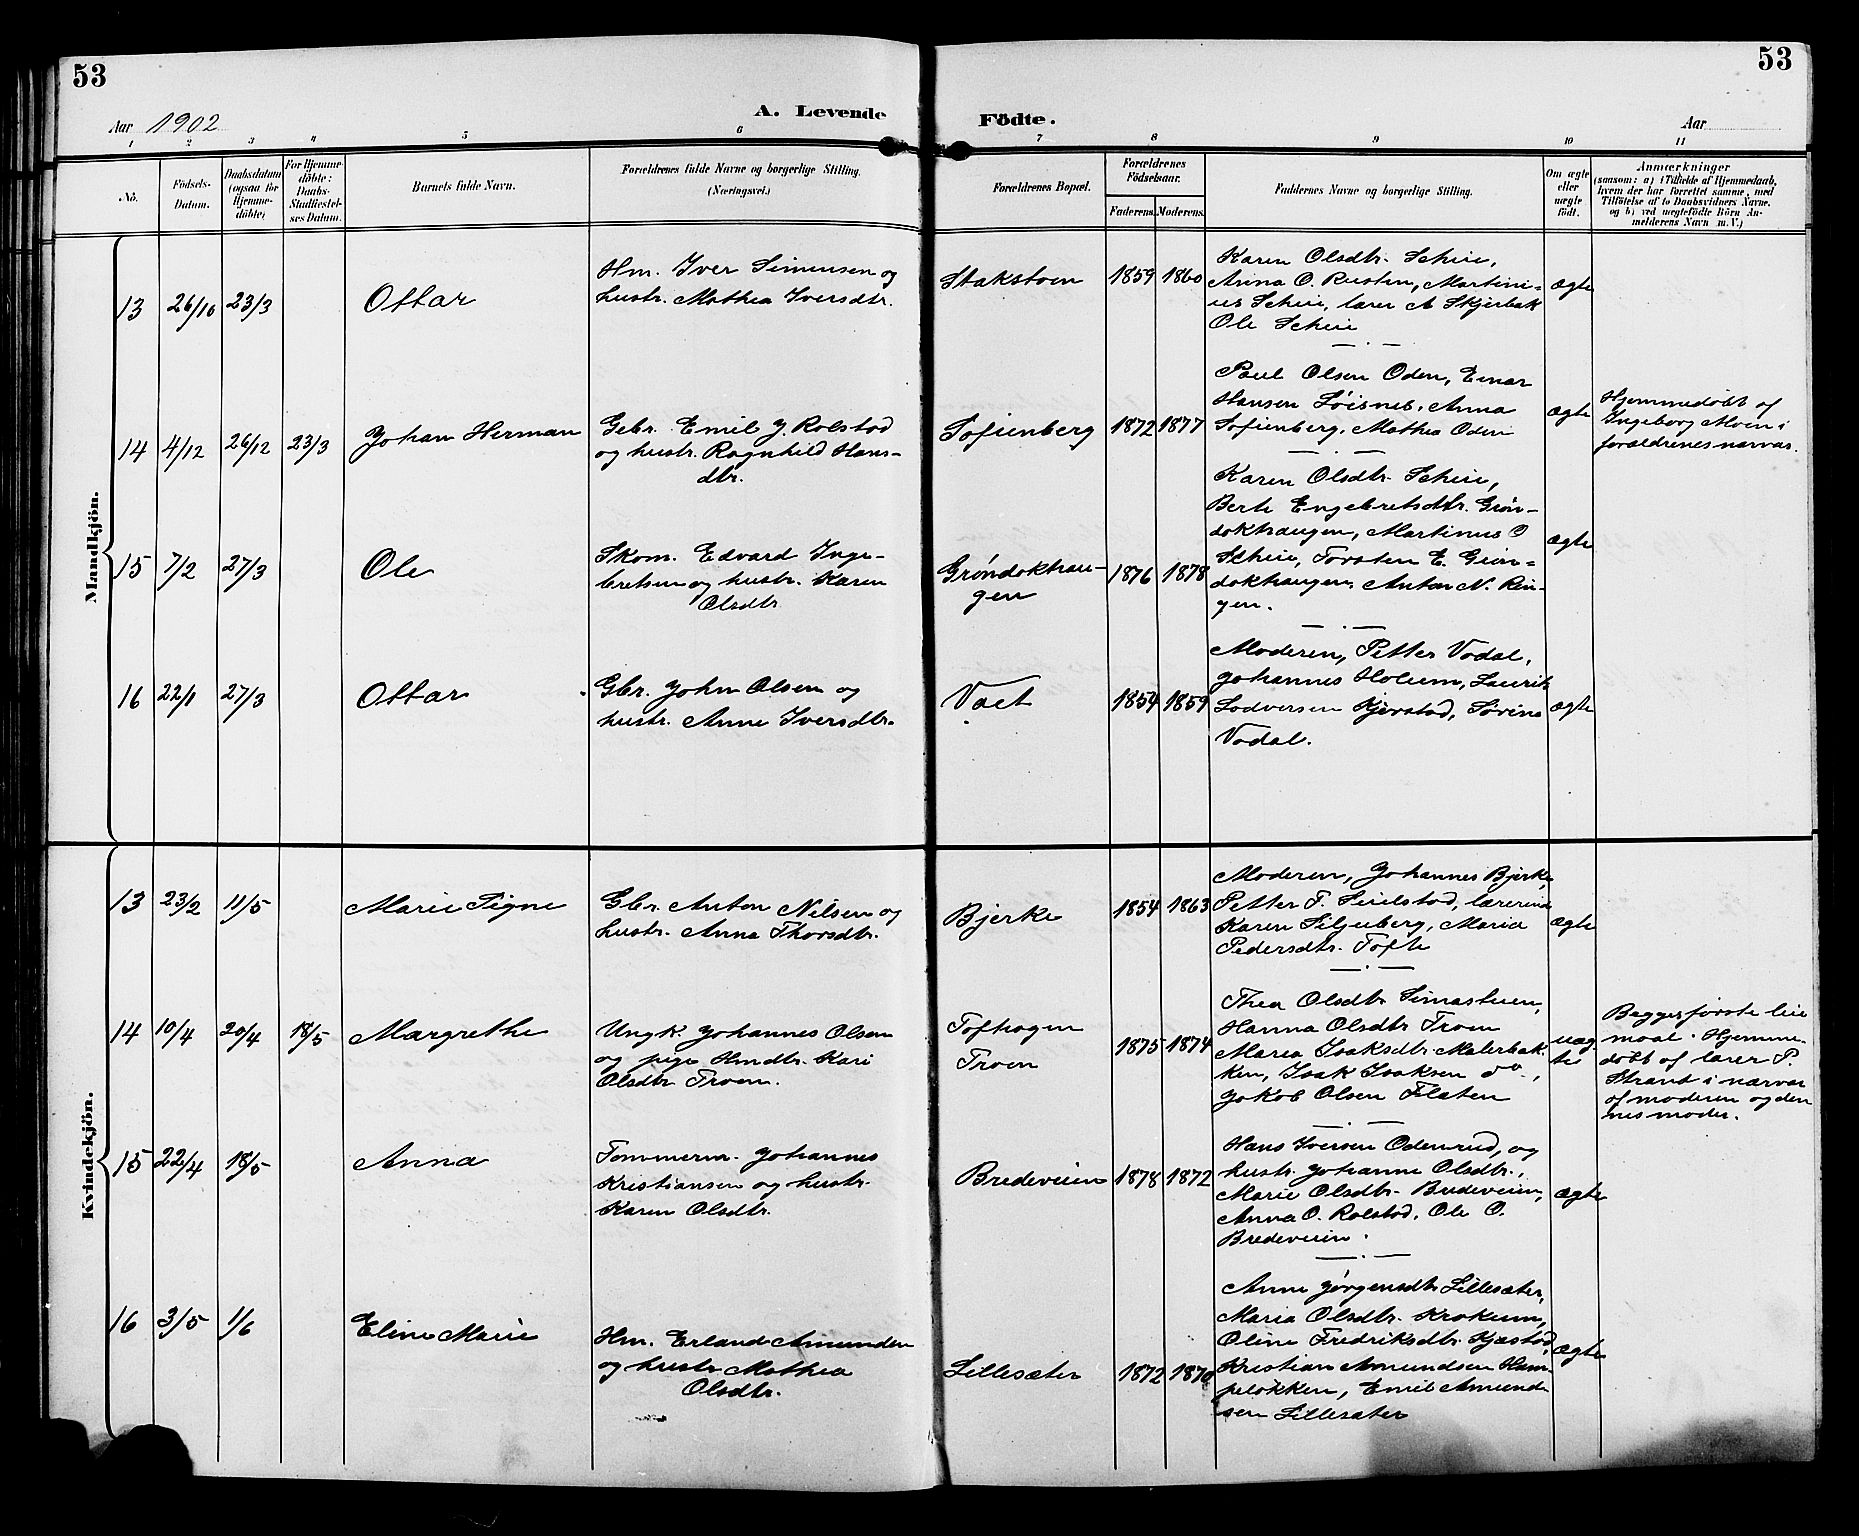 53
53
Aar 1902
A. Levende
Födte.
Aar
1 2 3 4 5 6 7 8 9 10 11
No.
Födsels-
Datum.
Daabsdatum
(ogsaa for
Hjemme-
döbte)
For Hjemme-
döbte:
Daabs-
Stadfæstel-
ses Datum.
Barnets fulde Navn.
Forældrenes fulde Navne og borgerlige Stilling.
(Næringsvei.)
Forældrenes Bopæl.
Forældrenes
Födselsaar.
Faderens. Moderens.
Faddernes Navne og borgerlige Stilling.
Om ægte
eller
uægte
födt.
Anmærkninger
(saasom: a) i Tilfælde af Hjemmedaab,
hvem der har forrettet samme, med
Tilföielse af to Daabsvidners Navne,
og b) ved uægtefödte Börn An-
melderens Navn m. V.)
Mandkjön.
13 26/10 23/3
Ottar
Hm. Iver Simensen og
hustr. Mathea Iversdtr.
Stakstoen
1859 1860
Karen Olsdtr. Scheie,
Anna O. Rusten, Martini-
us Scheie, lærer A Skjerbak
Ole Scheie
ægte
14 4/12 26/12 23/3
Johan Herman
Gebr. Emil J. Rolstad
og hustr. Ragnhild Hans-
dtr.
Sofienberg
1872 1877
Paul Olsen Oden, Einar
Hansen Löisnes, Anna
Sofienberg, Mathea Oden
ægte
Hjemmedöbt af
Ingeborg Moen i
forældrenes nærvær.
15 7/2 27/3
Ole
Skom. Edvard Inge-
bretsen og hustr. Karen
Olsdtr.
Gröndokhau-
gen
1876 1878
Karen Olsdtr. Scheie,
Berte Engebretsdtr. Grön-
dokhaugen, Martinus O
Scheie, Torsten E. Grön-
dokhaugen, Anton N. Rin-
gen.
ægte
16 22/1 27/3
Ottar
Gbr. John Olsen og
hustr. Anne Iversdtr.
Voet
1854 1859
Moderen, Petter Vodal,
Johannes Holum, Laurits
Lodversen Kjörstad, Sörine
Vodal.
ægte
Kvindekjön.
13 23/2 11/5
Marie Signe
Gbr. Anton Nilsen og
hustr. Anna Thorsdtr.
Bjerke
1854 1863
Moderen, Johannes Bjerke,
Petter T. Seielstad, lærerinde
Karen Siljuberg, Maria
Pedersdtr. Tofte
ægte
14 10/4 20/4 18/5
Margrethe
Ungk. Johannes Olsen
og pige Hmdtr. Kari
Olsdtr Troen.
Tofthagen
Troen
1875 1874
Thea Olsdtr Simastuen,
Hanna Olsdtr Troen
Maria Isaksdtr. Malerbak-
ken, Isak Isaksen do.,
Jakob Olsen Flaten
uæg-
te
Begges förste leie
maal. Hjemme-
döbt af lærer P.
Strand i nærvær
af moderen og den
nes moder.
15 22/4 18/5
Anna
Tömmerm. Johannes
Kristiansen og hustr.
Karen Olsdtr.
Bredeveien
1878 1872
Hans Iversen Odenrud, og
hustr. Johanne Olsdtr.,
Marie Olsdtr. Bredeveien,
Anna O. Rolstad, Ole O.
Bredeveien.
ægte
16 3/5 1/6
Eline Marie
Hm. Erland Amundsen
og hustr Mathea
Olsdtr.
Lillesæter
1872 1870
Anne Jörgensdtr Lillesæter,
Maria Olsdtr. Krokum,
Oline Fredriksdtr. Kjæstad,
Kristian Amundsen Ham-
pelökken, Emil Amund-
sen Lillesæter
ægte